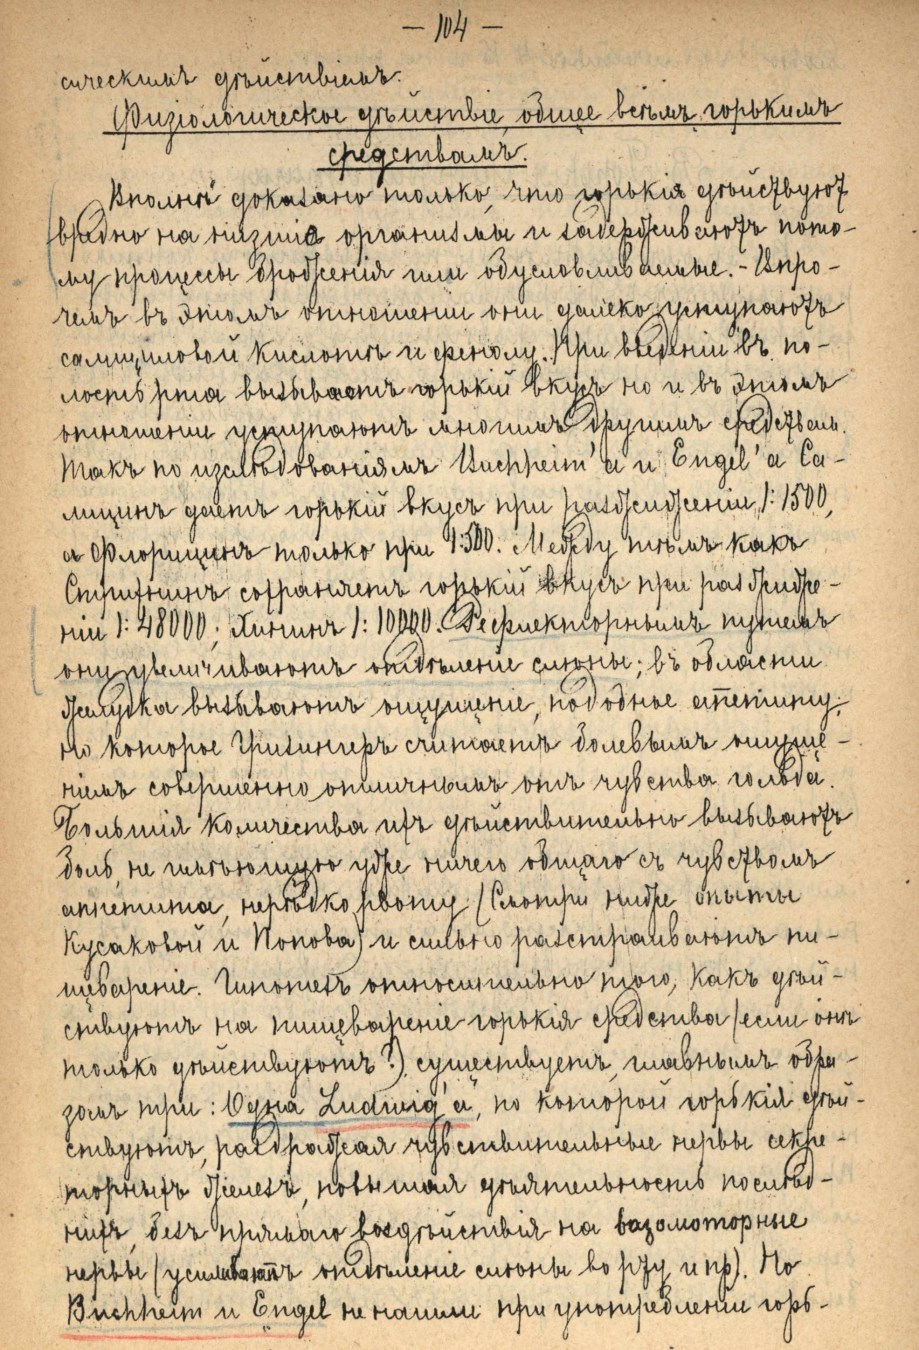 — 104 —
сическимъ дѣйствіемъ.
Физіологическое дѣйствіе, общее всѣмъ горькимъ
средствамъ.
Вполнѣ доказано только, что горькія дѣйствуютъ
вредно на низшіе организмы и задерживаютъ пото-
му процессы броженія ими обусловливаемые. - Впро-
чемъ въ этомъ отношеніи они далеко уступаютъ
салициловой кислотѣ и фенолу. При введеніи въ по-
лость рта вызываетъ горькій вкусъ но и въ этомъ
отношеніи уступаютъ многимъ другимъ средствам.
Такъ по изслѣдованіямъ Buchheim'a и Engel'a Са-
лицинъ даетъ горькій вкусъ при разжиженіи 1:1500,
а Флорицинъ только при 1:500. Между тѣмъ какъ
Стрихнинъ сохраняетъ горькій вкусъ при разжиже-
ніи 1:48000; Хининъ 1:10000. Рефлекторнымъ путемъ
они увеличиваютъ отдѣленіе слюны; въ области
желудка вызываютъ ощущеніе, подобное апетиту,
но которое Гризингеръ считаетъ болевымъ ощуще-
ніемъ совершенно отличнымъ отъ чувства голода.
Большія количества ихъ дѣйствительно вызываютъ
боль, не имѣющую уже ничего общаго съ чувствомъ
аппетита, нерѣдко рвоту (Смотри ниже опыты
Кусаковой и Попова) и сильно разстраиваютъ пи-
щвареніе. Гипотезъ относительно того, какъ дѣй-
ствуютъ на пищевареніе горькія средства (если онѣ
только дѣйствуютъ?) существуетъ, главнымъ обра-
зомъ три: Одна Ludwig'a, по которой горькія дѣй-
ствуютъ, раздражая чувствительные нервы секре-
торныхъ железъ, повышая дѣятельность послѣд-
нихъ, безъ прямаго воздѣйствія на вазомоторные
нервы (усиливаютъ отдѣленіе слюны во рту и пр). Но
Buchheim и Engel не нашли при употребленіи горь-